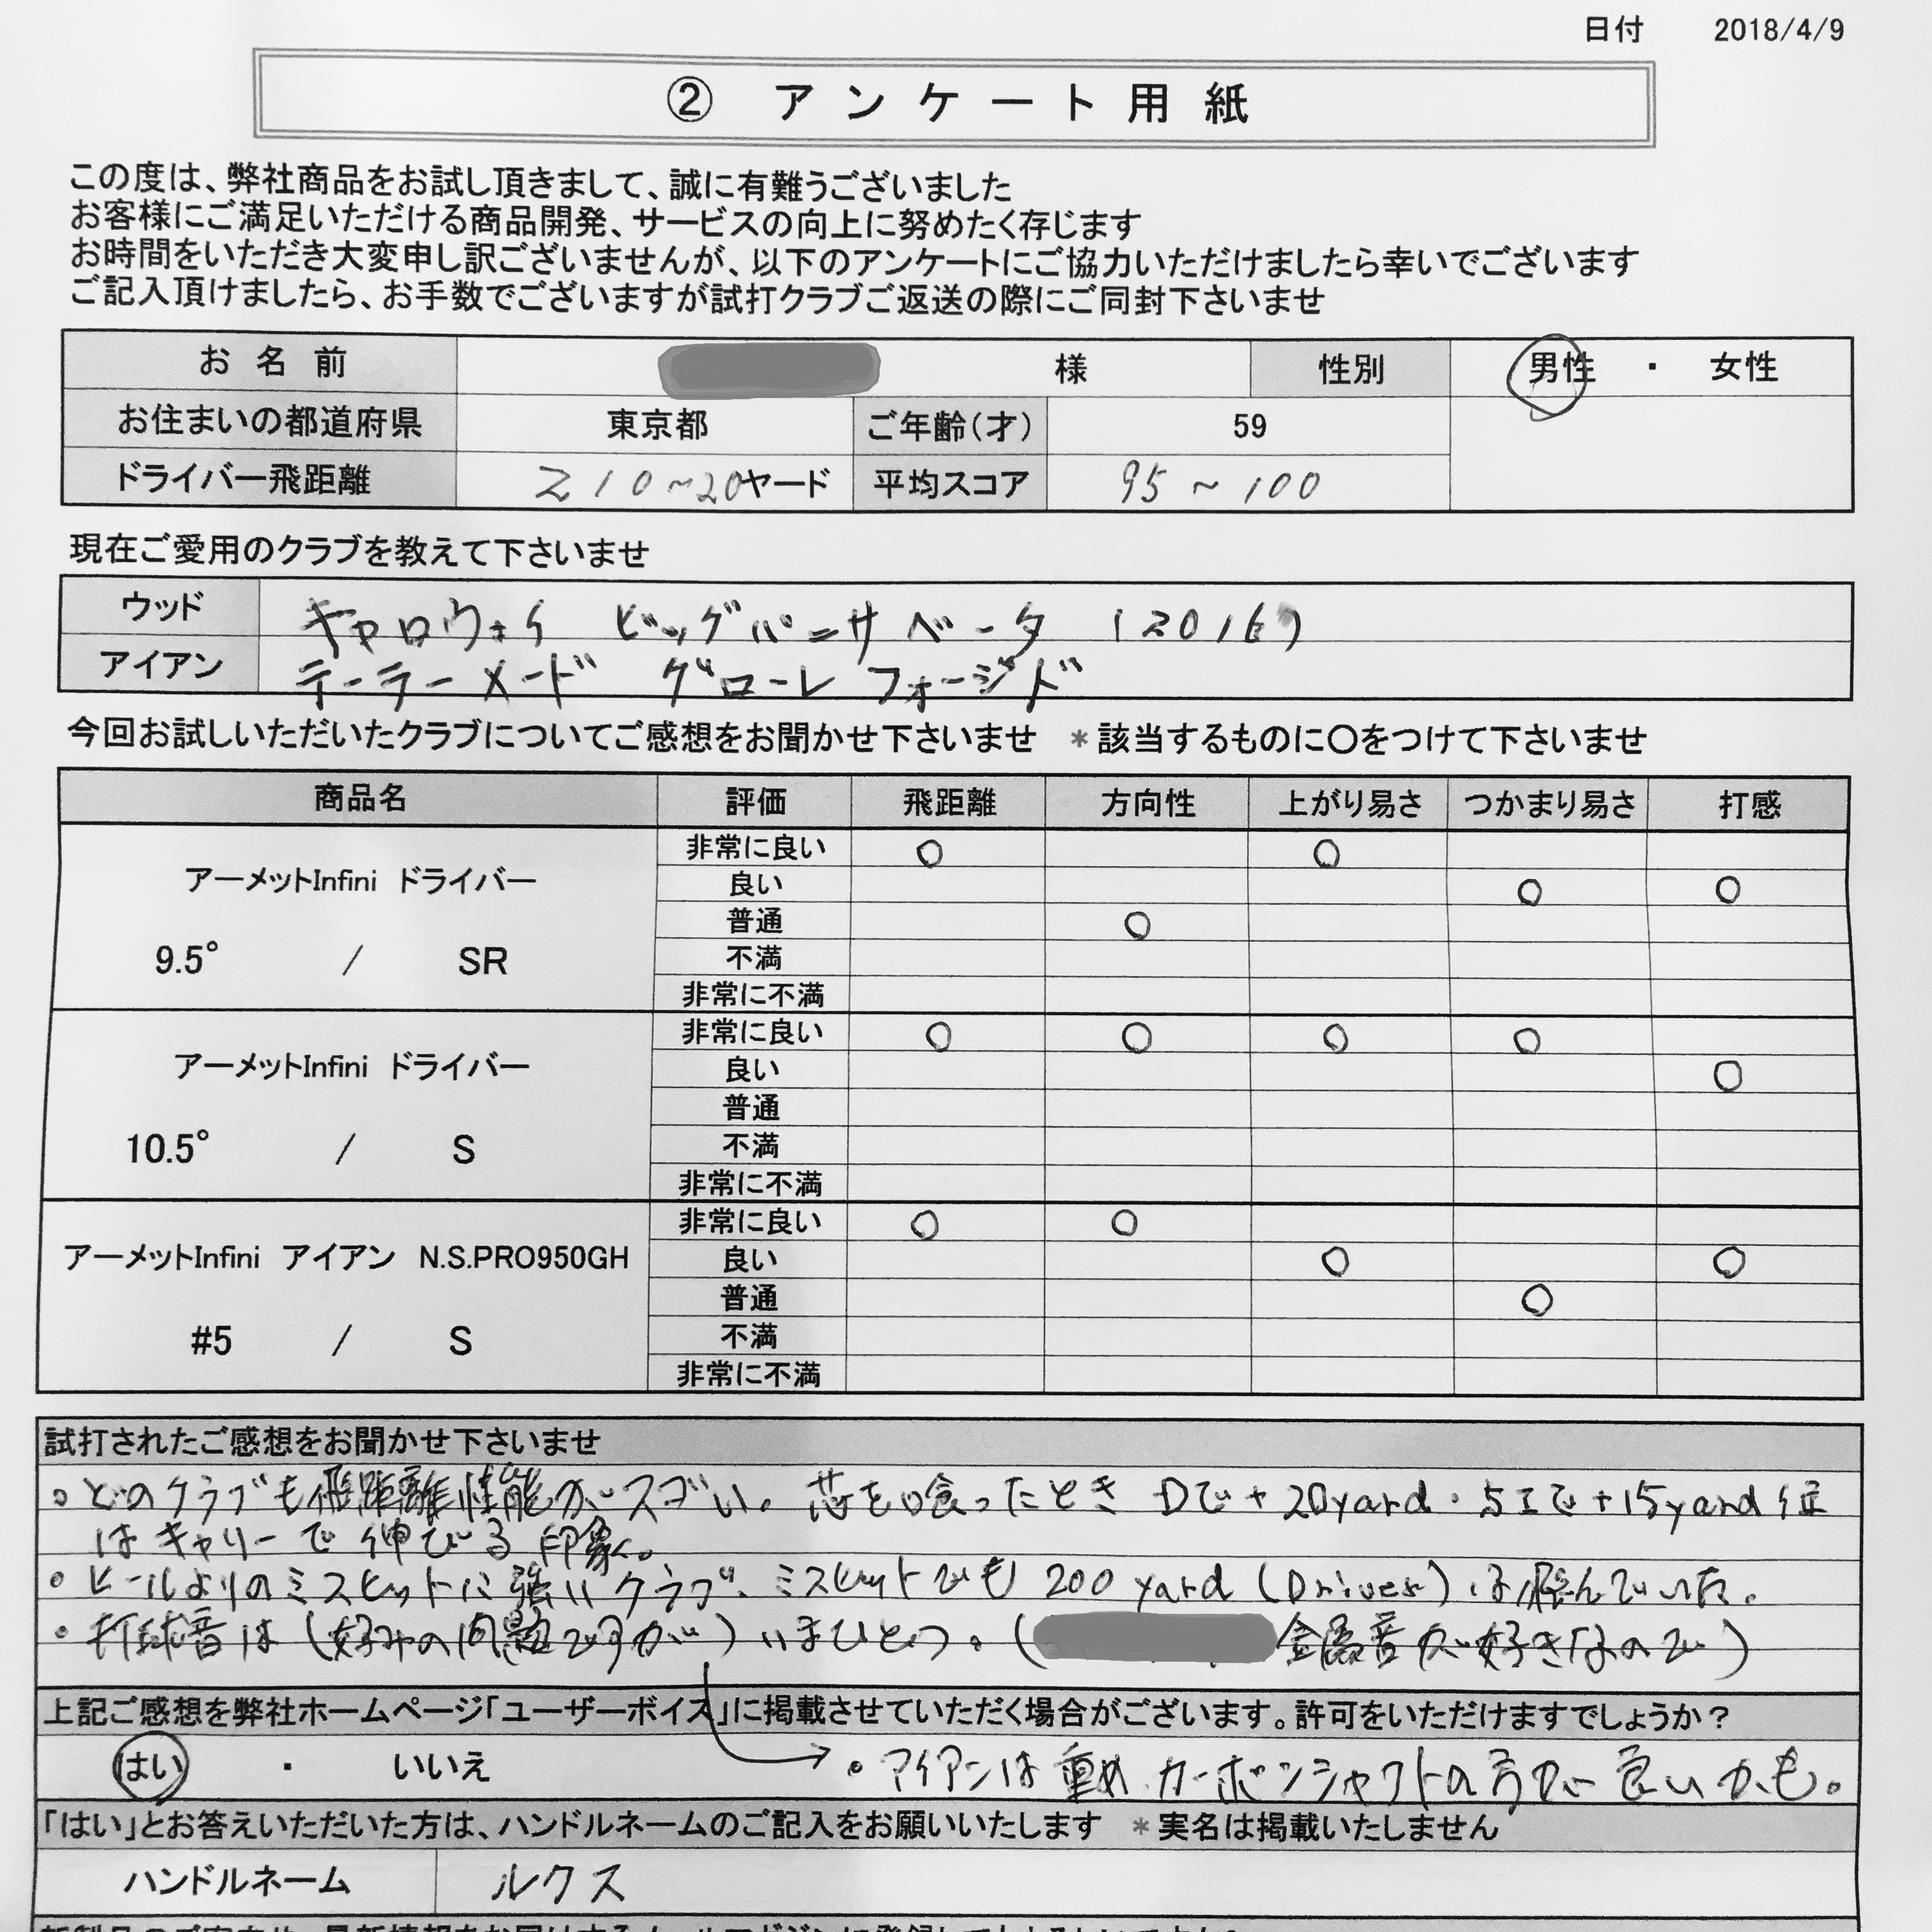 日付 2018/4/9
② アンケート用紙
この度は、弊社商品をお試し頂きまして、誠に有難うございました
お客様にご満足いただける商品開発、サービスの向上に努めたく存じます
お時間をいただき大変申し訳ございませんが、以下のアンケートにご協力いただけましたら幸いでございます
ご記入頂けましたら、お手数でございますが試打クラブご返送の際にご同封下さいませ
お名前 様 性別 男性 ・ 女性
お住まいの都道府県 東京都 ご年齢(才) 59
ドライバー飛距離 210~20ヤード 平均スコア 95~100
現在ご愛用のクラブを教えて下さいませ
ウッド キャロウェイ ビッグバーサ ベータ (2016)
アイアン テーラーメード グローレ フォージド
今回お試しいただいたクラブについてご感想をお聞かせ下さいませ *該当するものに〇をつけて下さいませ
商品名 評価 飛距離 方向性 上がり易さ つかまり易さ 打感
アーメットInfini ドライバー
9.5° / SR
非常に良い 〇 〇
良い 〇 〇
普通 〇
不満
非常に不満
アーメットInfini ドライバー
10.5° / S
非常に良い 〇 〇 〇 〇
良い 〇
普通
不満
非常に不満
アーメットInfini アイアン N.S.PRO950GH
#5 / S
非常に良い 〇 〇
良い 〇 〇
普通 〇
不満
非常に不満
試打されたご感想をお聞かせ下さいませ
。どのクラブも飛距離性能がスゴい。芯を喰ったとき Dで+20yard・5Iで+15yard位
はキャリーで伸びる印象。
・ヒールよりのミスヒットに強いクラブ、ミスヒットでも 200 yard (Driver) は飛んでいた。
・打球音は(好みの問題ですが)いまひとつ。( 金属音が好きなので)
上記ご感想を弊社ホームページ「ユーザーボイス」に掲載させていただく場合がございます。許可をいただけますでしょうか?
はい ・ いいえ
。アイアンは重めカーボンシャフトの方が良いかも。
「はい」とお答えいただいた方は、ハンドルネームのご記入をお願いいたします *実名は掲載いたしません
ハンドルネーム ルクス